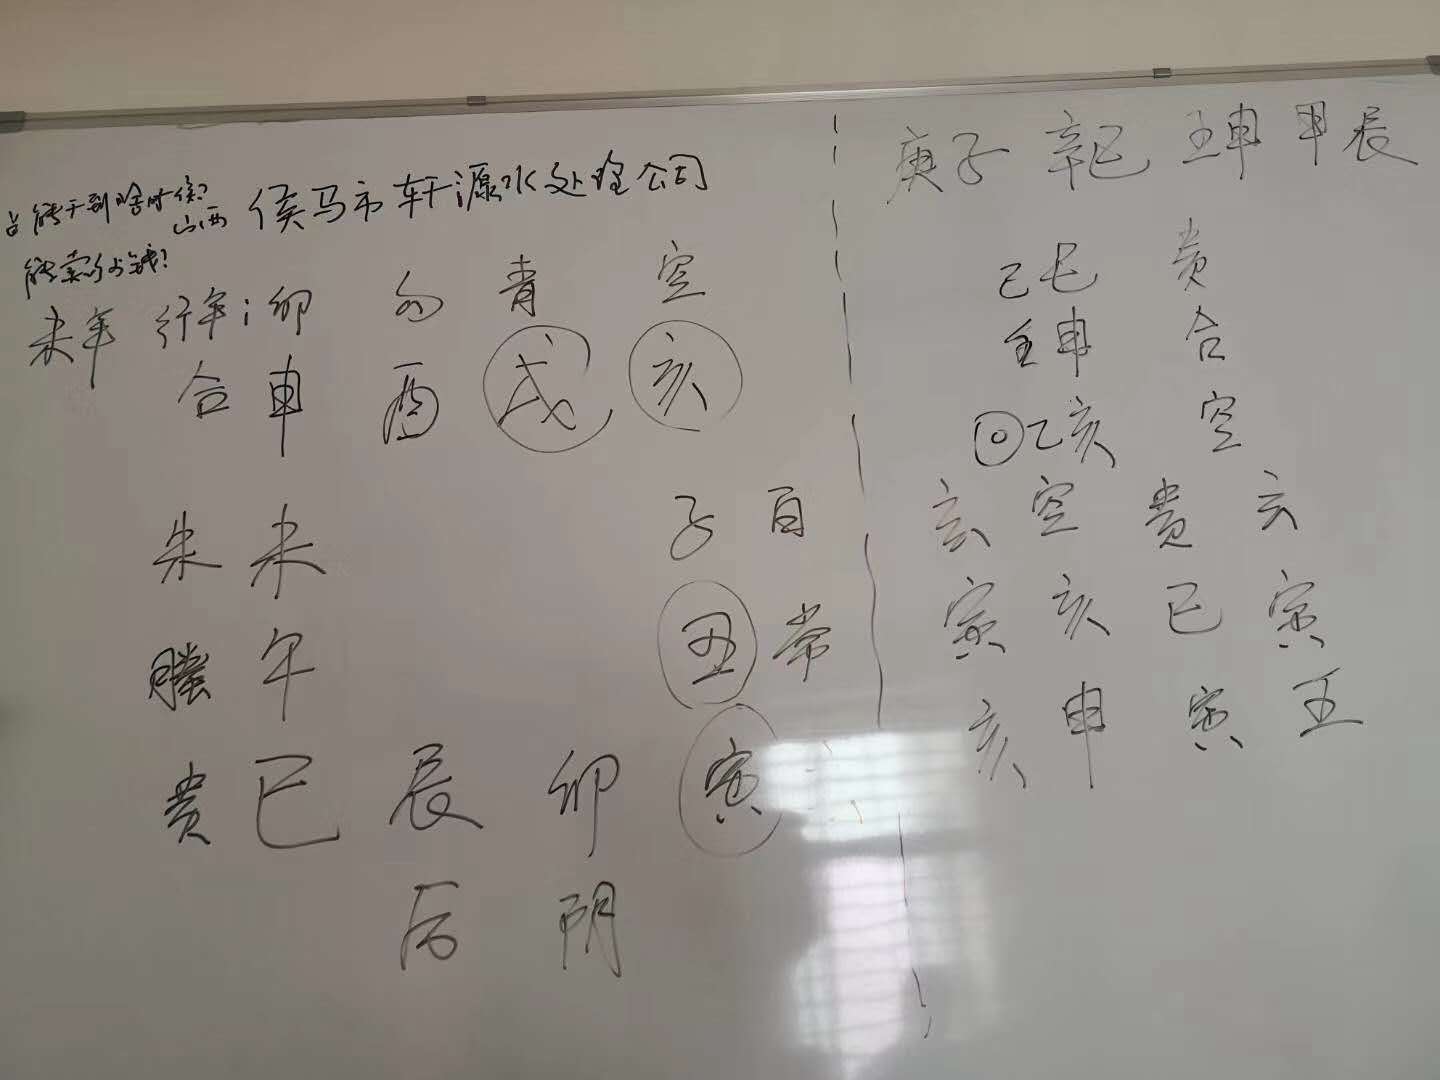 占能干到啥时候?
山西 侯马市轩源水处理公司
能卖多少钱?
未年 行年:卯 勾 青 空
合 申 酉 戌 亥
朱 未 子 白
螣 午 丑 常
贵 巳 辰 卯 寅
后 阴
庚子 辛巳 壬申 甲辰
己巳 贵
壬申 合
乙亥 空
玄 空 贵 六
寅 亥 巳 寅
亥 申 寅 壬